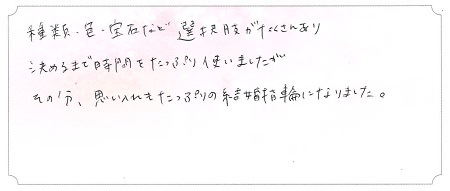 種類・色・宝石など 選択肢がたくさんあり
決めるまで時間をたっぷり使いましたが
その分、思い入れもたっぷりの結婚指輪になりました。